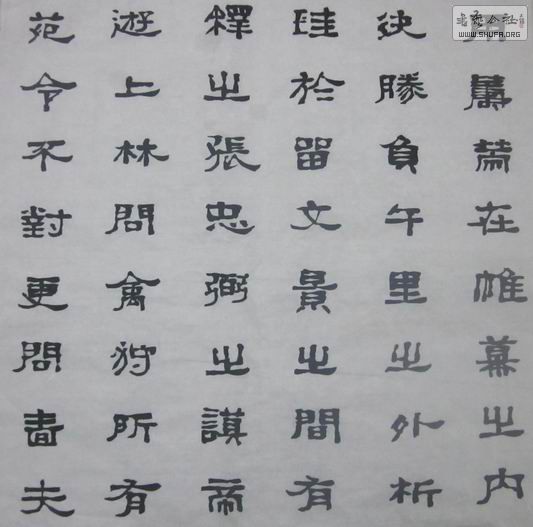 籌策在帷幕之内
決勝負千里之外析
珪於留文景之間有
釋之張忠弼之謨帝
遊上林問禽狩所有
苑令不對更問嗇夫
書藝公社
WWW.SHUFA.ORG